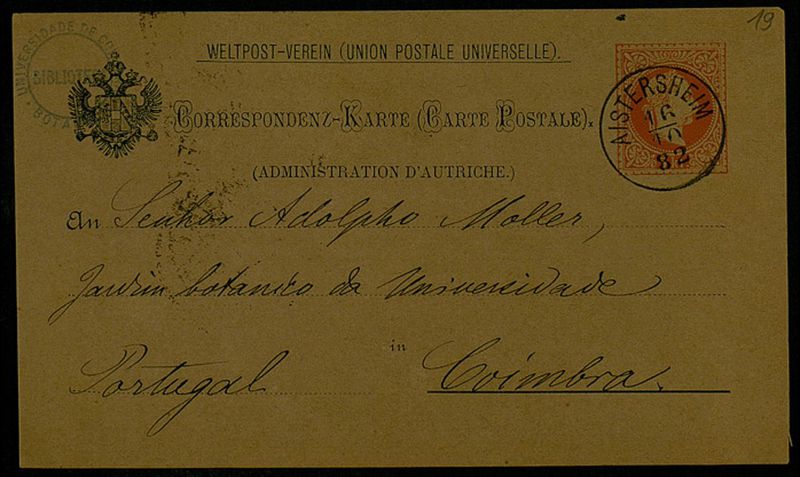 19
UNIVERSIDADE DE CO
BIBLIOTE
BOTA
WELTPOST-VEREIN (UNION POSTALE UNIVERSELLE).
CORRESPONDENZ-KARTE (CARTE POSTALE).
(ADMINISTRATION D'AUTRICHE.)
AISTERSHEIM
16
10
82
An Senhor Adolpho Moller,
Jardim botanico da Universidade
in
Portugal Coimbra.